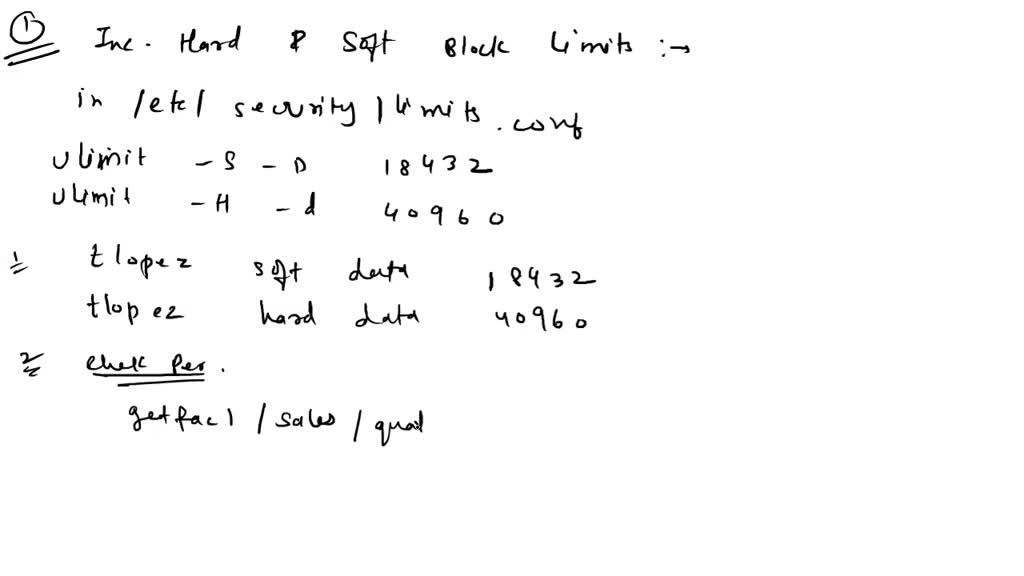 ① Inc. Hard & Soft Block Limits :→
in /etc/ security / limits . conf
ulimit - S - D 18432
ulimit - H - d 40960
1 tlopez soft data 18432
tlopez hard data 40960
2 Chek Per .
getfacl / sales / quat